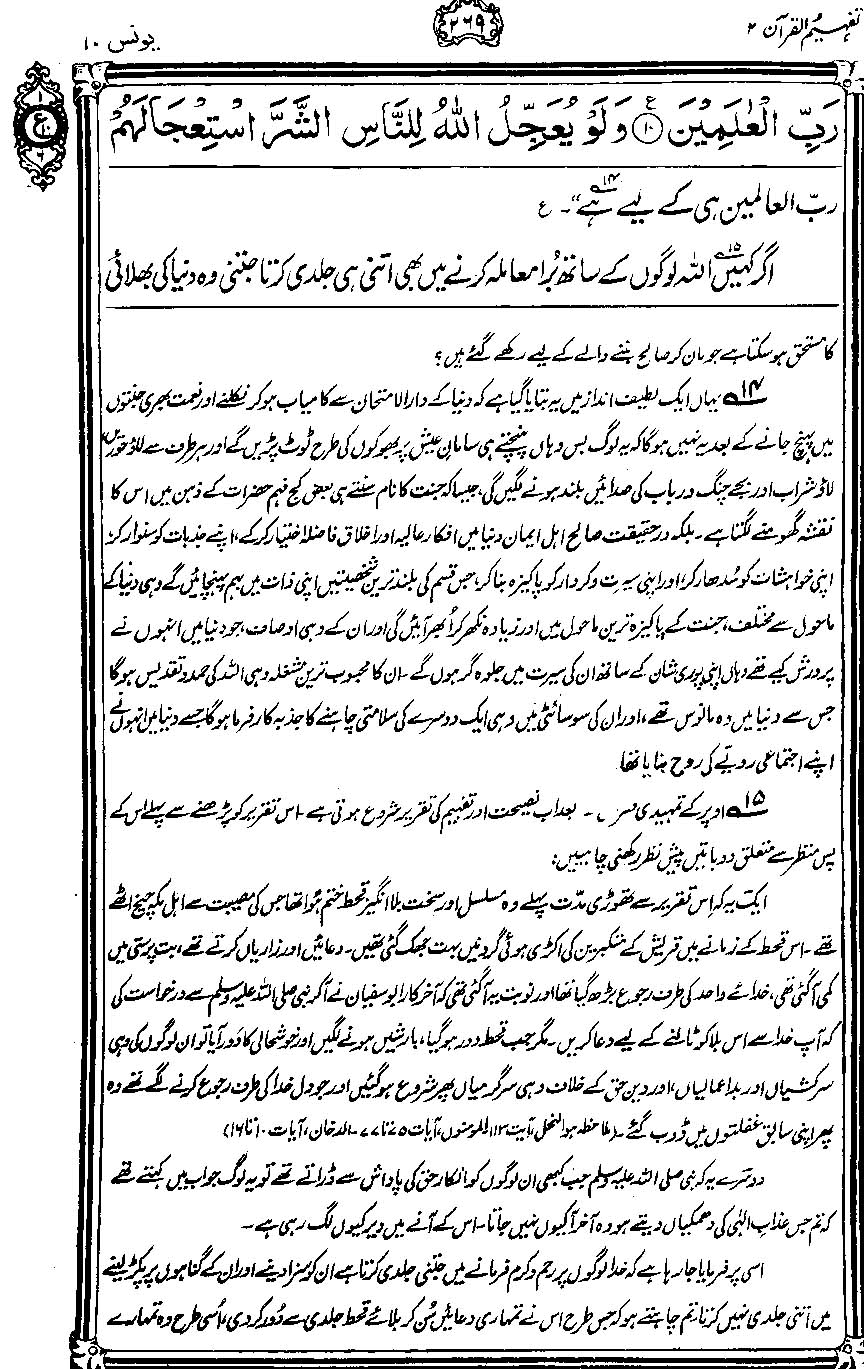 تفہیم القرآن ۲
۲۶۹
یونس ۱۰
رَبِّ الْعٰلَمِیْنَ ۝۱۰ ع وَلَوْ یُعَجِّلُ اللّٰهُ لِلنَّاسِ الشَّرَّ اسْتِعْجَالَهُمْ
ربّ العالمین ہی کے لیے ہے۱۴“۔ ع
اگر کہیں۱۵ اللہ لوگوں کے ساتھ بُرا معاملہ کرنے میں بھی اتنی ہی جلدی کرتا جتنی وہ دنیا کی بھلائی
کا مستحق ہو سکتا ہے جو مان کر صالح بننے والے کے لیے رکھے گئے ہیں؟
۱۴ یہاں ایک لطیف انداز میں یہ بتایا گیا ہے کہ دنیا کے دارالامتحان سے کامیاب ہو کر نکلنے اور نعمت بھری جنتوں
میں پہنچ جانے کے بعد یہ نہیں ہوگا کہ یہ لوگ بس وہاں پہنچتے ہی سامان عیش پر بھوکوں کی طرح ٹوٹ پڑیں گے اور ہر طرف سے لاؤ حوریں
لاؤ شراب اور بجے چنگ و رباب کی صدائیں بلند ہونے لگیں گی، جیسا کہ جنت کا نام سنتے ہی بعض کج فہم حضرات کے ذہن میں اس کا
نقشہ گھومنے لگتا ہے۔ بلکہ درحقیقت صالح اہل ایمان دنیا میں افکار عالیہ اور اخلاق فاضلہ اختیار کر کے، اپنے جذبات کو سنوار کر،
اپنی خواہشات کو سُدھار کر، اور اپنی سیرت و کردار کو پاکیزہ بنا کر، جس قسم کی بلند ترین شخصیتیں اپنی ذات میں بہم پہنچائیں گے وہی دنیا کے
ماحول سے مختلف، جنت کے پاکیزہ ترین ماحول میں اور زیادہ نکھر کر اُبھر آئیں گی اور ان کے وہی اوصاف، جو دنیا میں انہوں نے
پرورش کیے تھے وہاں اپنی پوری شان کے ساتھ ان کی سیرت میں جلوہ گر ہوں گے۔ ان کا محبوب ترین مشغلہ وہی اللہ کی حمد و تقدیس ہوگا
جس سے دنیا میں وہ مانوس تھے، اور ان کی سوسائٹی میں وہی ایک دوسرے کی سلامتی چاہنے کا جذبہ کارفرما ہوگا جسے دنیا میں انہوں نے
اپنے اجتماعی رویّے کی روح بنایا تھا
۱۵ اوپر کے تمہیدی بعد اب نصیحت اور تفہیم کی تقریر شروع ہوتی ہے۔ اس تقریر کو پڑھنے سے پہلے اس کے
پس منظر سے متعلق دو باتیں پیش نظر رکھنی چاہییں:
ایک یہ کہ اس تقریر سے تھوڑی مدّت پہلے وہ مسلسل اور سخت بلا انگیز قحط ختم ہُوا تھا جس کی مصیبت سے اہل مکہ چیخ اٹھے
تھے۔ اس قحط کے زمانے میں قریش کے متکبرین کی اکڑی ہوئی گردنیں بہت جھک گئی تھیں۔ دعائیں اور زاریاں کرتے تھے، بت پرستی میں
کمی آ گئی تھی، خدائے واحد کی طرف رجوع بڑھ گیا تھا اور نوبت یہ آ گئی تھی کہ آخرکار ابو سفیان نے آ کر نبی صلی اللہ علیہ وسلم سے درخواست کی
کہ آپ خدا سے اس بلا کو ٹالنے کے لیے دعا کریں۔ مگر جب قحط دور ہو گیا، بارشیں ہونے لگیں اور خوشحالی کا دَور آیا تو ان لوگوں کی وہی
سرکشیاں اور بد اعمالیاں، اور دین حق کے خلاف وہی سرگرمیاں پھر شروع ہو گئیں اور جو دل خدا کی طرف رجوع کرنے لگے تھے وہ
پھر اپنی سابق غفلتوں میں ڈوب گئے۔ (ملاحظہ ہو النحل، آیت ۱۱۳۔ المومنون، آیات ۷۵ تا ۷۷۔ الدخان، آیات ۱۰ تا ۱۶)
دوسرے یہ کہ نبی صلی اللہ علیہ وسلم جب کبھی ان لوگوں کو انکارِ حق کی پاداش سے ڈراتے تھے تو یہ لوگ جواب میں کہتے تھے
کہ تم جس عذابِ الٰہی کی دھمکیاں دیتے ہو وہ آخر آ کیوں نہیں جاتا۔ اس کے آنے میں دیر کیوں لگ رہی ہے۔
اسی پر فرمایا جا رہا ہے کہ خدا لوگوں پر رحم و کرم فرمانے میں جتنی جلدی کرتا ہے ان کو سزا دینے اور ان کے گناہوں پر پکڑ لینے
میں اتنی جلدی نہیں کرتا۔ تم چاہتے ہو کہ جس طرح اس نے تمہاری دعائیں سُن کر بلائے قحط جلدی سے دُور کر دی، اُسی طرح وہ تمہارے